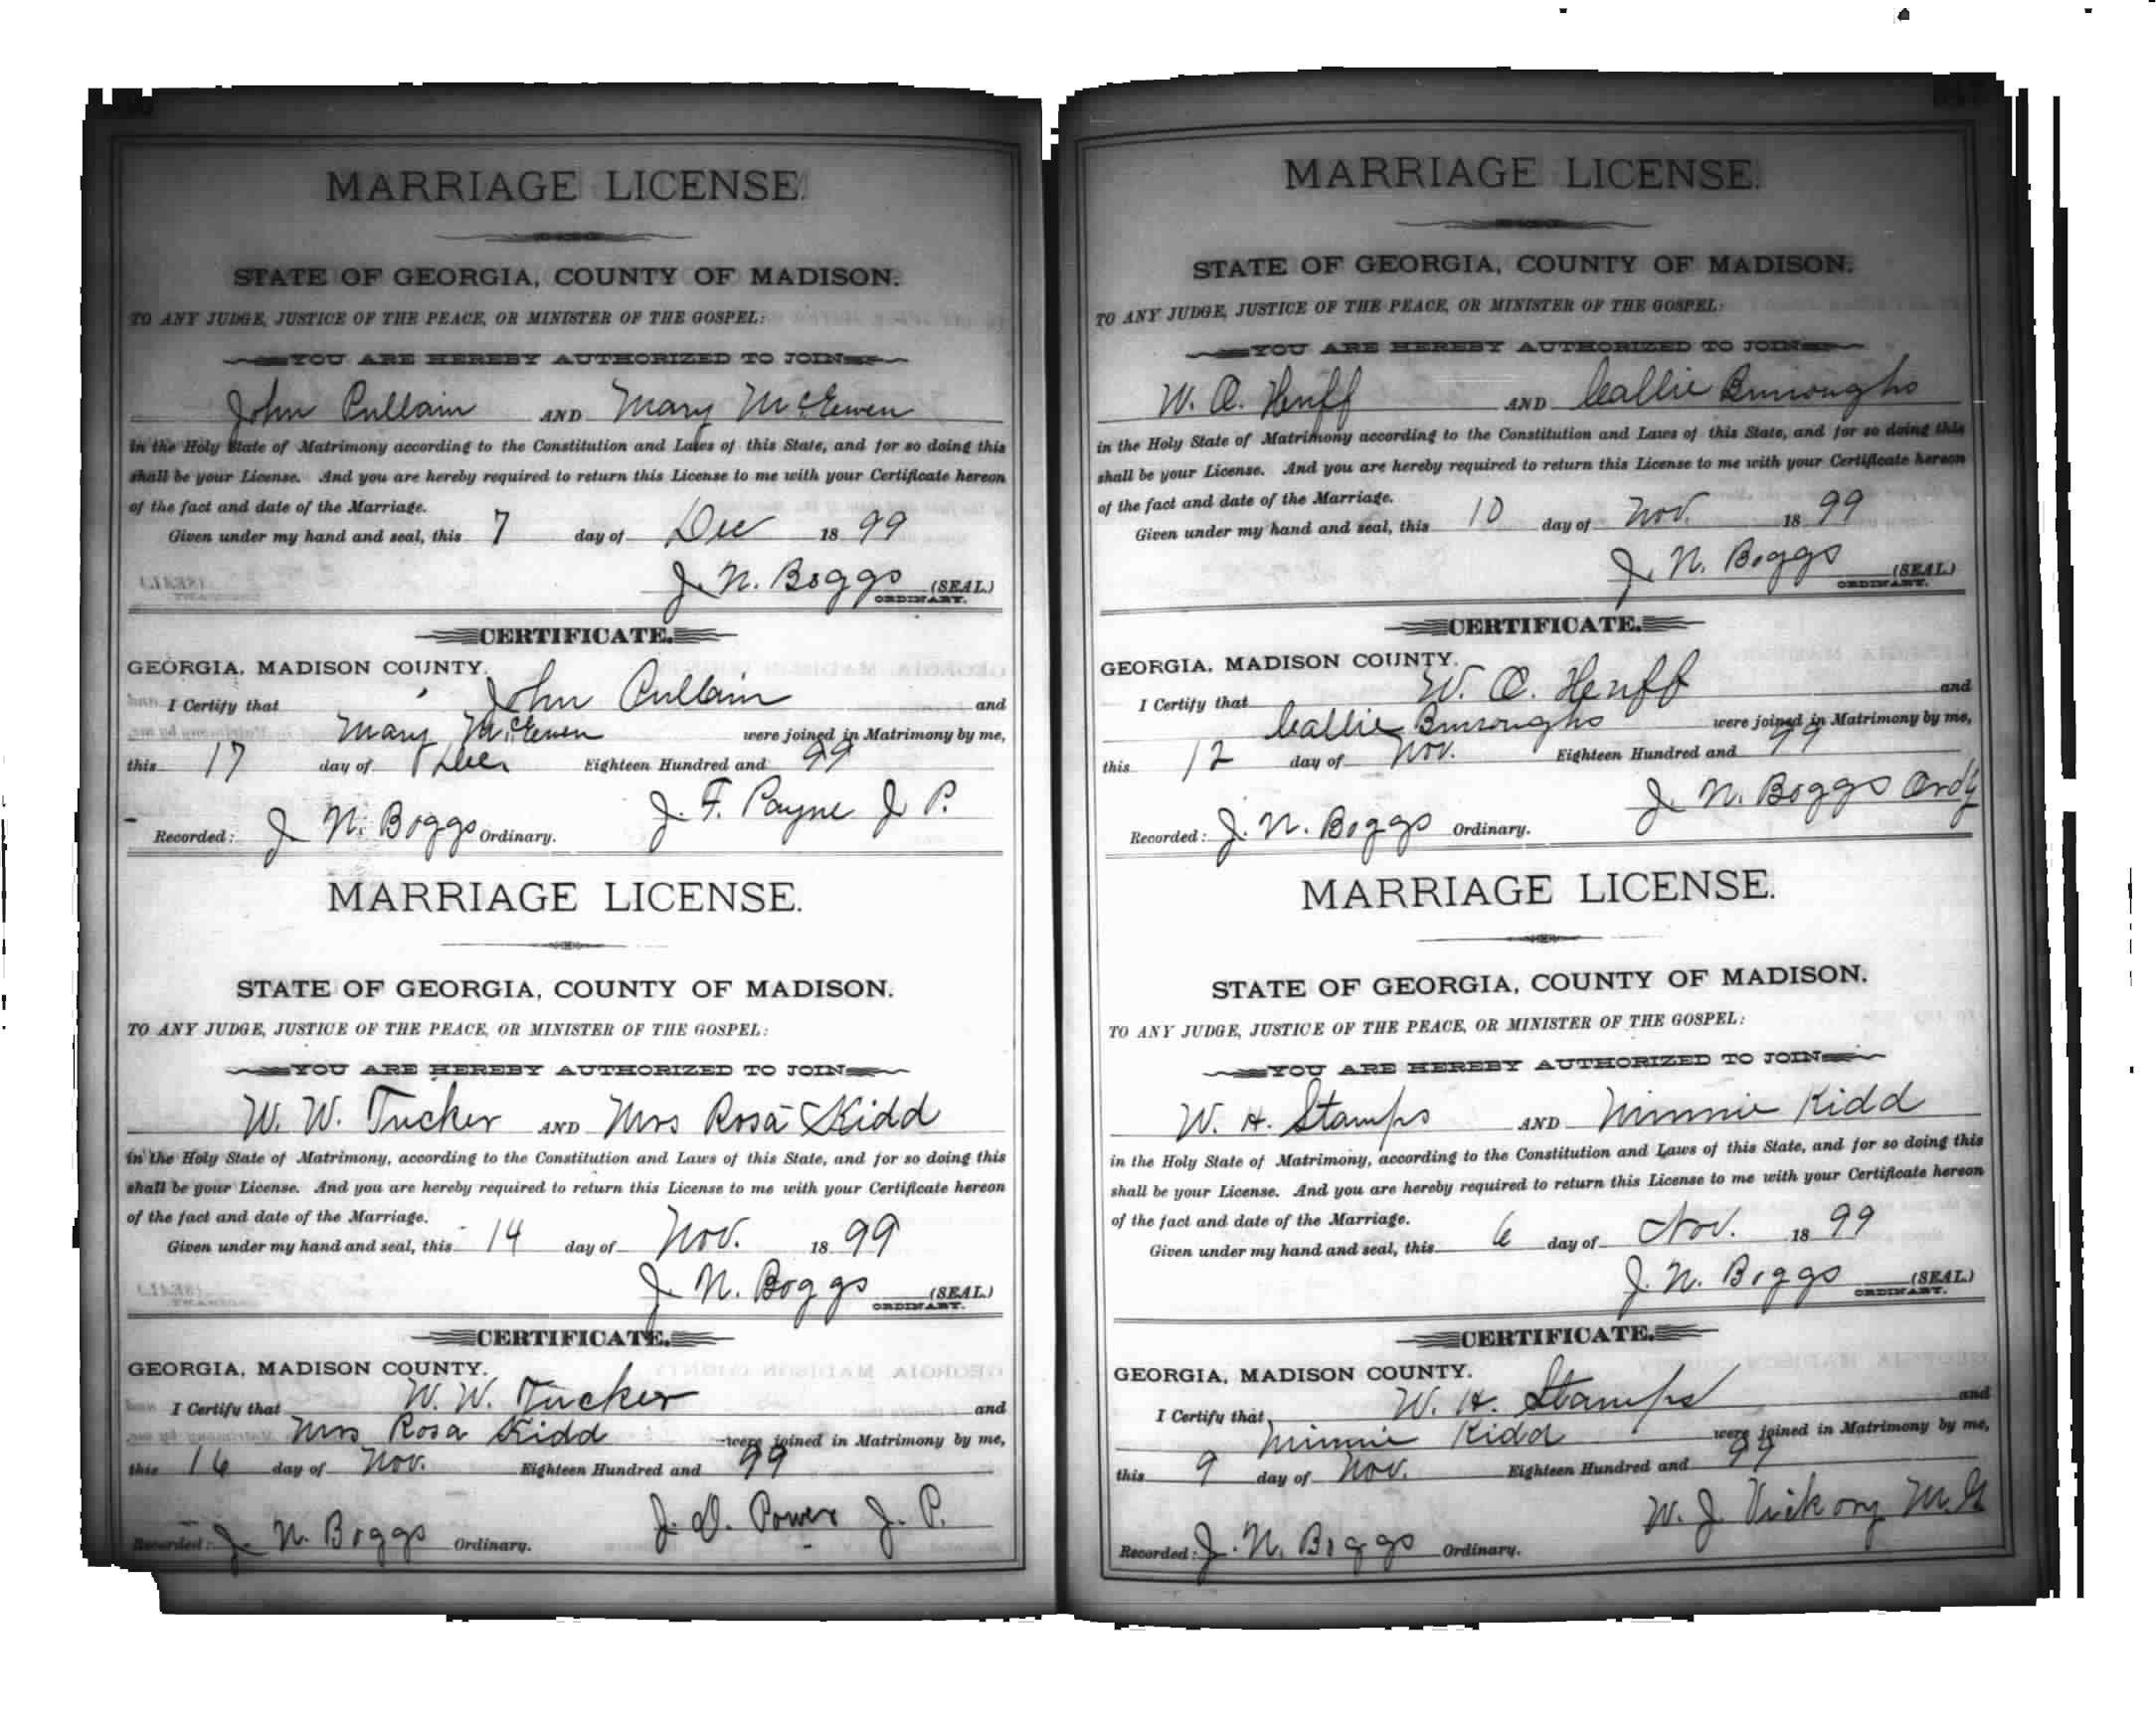 MARRIAGE LICENSE.
STATE OF GEORGIA, COUNTY OF MADISON.
TO ANY JUDGE, JUSTICE OF THE PEACE, OR MINISTER OF THE GOSPEL:
YOU ARE HEREBY AUTHORIZED TO JOIN
John Pullain AND Mary McEwen
in the Holy State of Matrimony according to the Constitution and Laws of this State, and for so doing this
shall be your License. And you are hereby required to return this License to me with your Certificate hereon
of the fact and date of the Marriage.
Given under my hand and seal, this 7 day of Dec 1899
J. N. Boggs (SEAL)
ORDINARY.
CERTIFICATE.
GEORGIA, MADISON COUNTY.
I Certify that John Pullain and
Mary McEwen were joined in Matrimony by me,
this 17 day of Dec Eighteen Hundred and 99
J. F. Payne J P.
Recorded: J N. Boggs Ordinary.
MARRIAGE LICENSE.
STATE OF GEORGIA, COUNTY OF MADISON.
TO ANY JUDGE, JUSTICE OF THE PEACE, OR MINISTER OF THE GOSPEL:
YOU ARE HEREBY AUTHORIZED TO JOIN
W. W. Tucker AND Mrs Rosa Kidd
in the Holy State of Matrimony, according to the Constitution and Laws of this State, and for so doing this
shall be your License. And you are hereby required to return this License to me with your Certificate hereon
of the fact and date of the Marriage.
Given under my hand and seal, this 14 day of Nov. 1899
J. N. Boggs (SEAL)
ORDINARY.
CERTIFICATE.
GEORGIA, MADISON COUNTY.
I Certify that W. W. Tucker and
Mrs Rosa Kidd were joined in Matrimony by me,
this 16 day of Nov. Eighteen Hundred and 99
J. D. Power J. P.
Recorded: J. N. Boggs Ordinary.
MARRIAGE LICENSE.
STATE OF GEORGIA, COUNTY OF MADISON.
TO ANY JUDGE, JUSTICE OF THE PEACE, OR MINISTER OF THE GOSPEL:
YOU ARE HEREBY AUTHORIZED TO JOIN
W. O. Huff AND Callie Burroughs
in the Holy State of Matrimony according to the Constitution and Laws of this State, and for so doing this
shall be your License. And you are hereby required to return this License to me with your Certificate hereon
of the fact and date of the Marriage.
Given under my hand and seal, this 10 day of Nov. 1899
J. N. Boggs (SEAL)
ORDINARY.
CERTIFICATE.
GEORGIA, MADISON COUNTY.
I Certify that W. O. Huff and
Callie Burroughs were joined in Matrimony by me,
this 12 day of Nov. Eighteen Hundred and 99
J. N. Boggs Ordy
Recorded: J. N. Boggs Ordinary.
MARRIAGE LICENSE.
STATE OF GEORGIA, COUNTY OF MADISON.
TO ANY JUDGE, JUSTICE OF THE PEACE, OR MINISTER OF THE GOSPEL:
YOU ARE HEREBY AUTHORIZED TO JOIN
W. H. Stamps AND Minnie Kidd
in the Holy State of Matrimony, according to the Constitution and Laws of this State, and for so doing this
shall be your License. And you are hereby required to return this License to me with your Certificate hereon
of the fact and date of the Marriage.
Given under my hand and seal, this 6 day of Nov. 1899
J. N. Boggs (SEAL)
ORDINARY.
CERTIFICATE.
GEORGIA, MADISON COUNTY.
I Certify that W. H. Stamps and
Minnie Kidd were joined in Matrimony by me,
this 9 day of Nov. Eighteen Hundred and 99
W. J. Vickory M.G
Recorded: J. N. Boggs Ordinary.